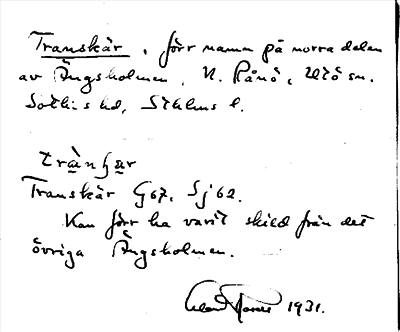 Transkär, förr namn på norra delen
av Ängsholmen, N. Rånö, Utö sn.
Soth:s hd, Sthlms l.
Transkär G67, Sj62.
Kan förr ha varit skild från det
övriga Ängsholmen.
1931.